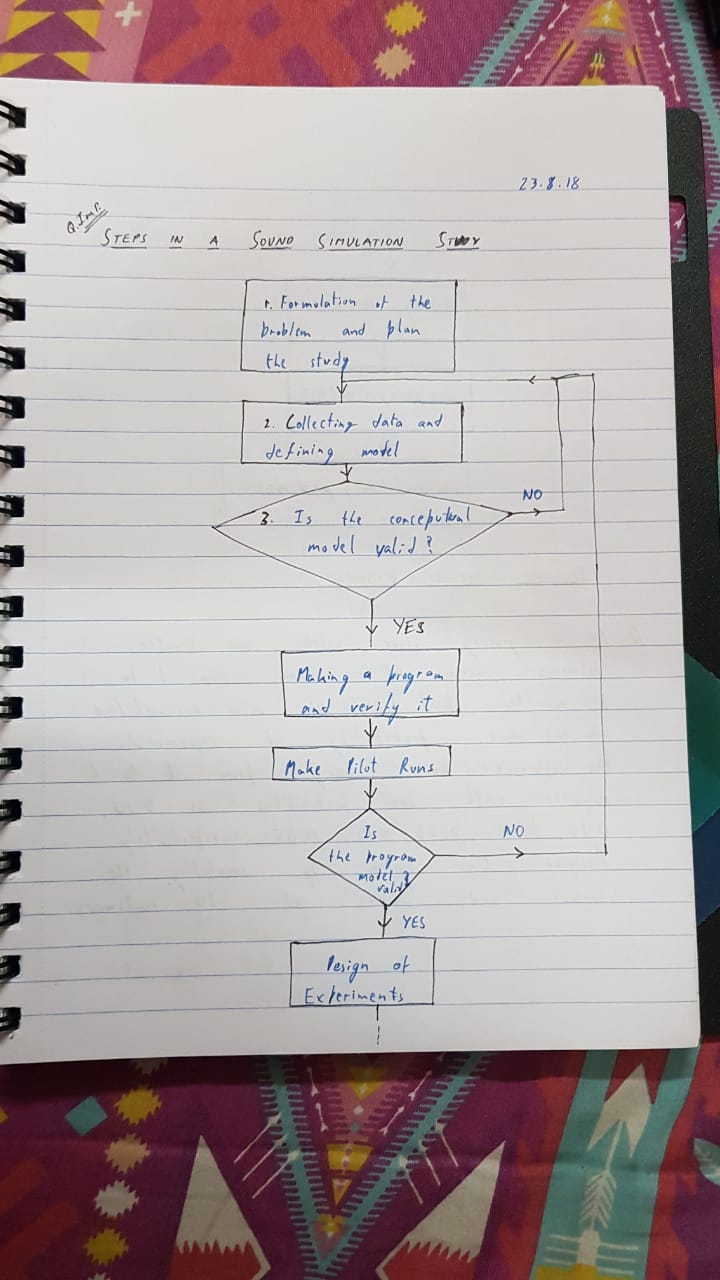 23.8.18
Q. Imp.
STEPS IN A SOUND SIMULATION STUDY
1. Formulation of the
problem and plan
the study
2. Collecting data and
defining model
NO
3. Is the conceputual
model valid?
YES
Making a program
and verify it
Make Pilot Runs
Is
the program
model
valid?
NO
YES
Design of
Experiments